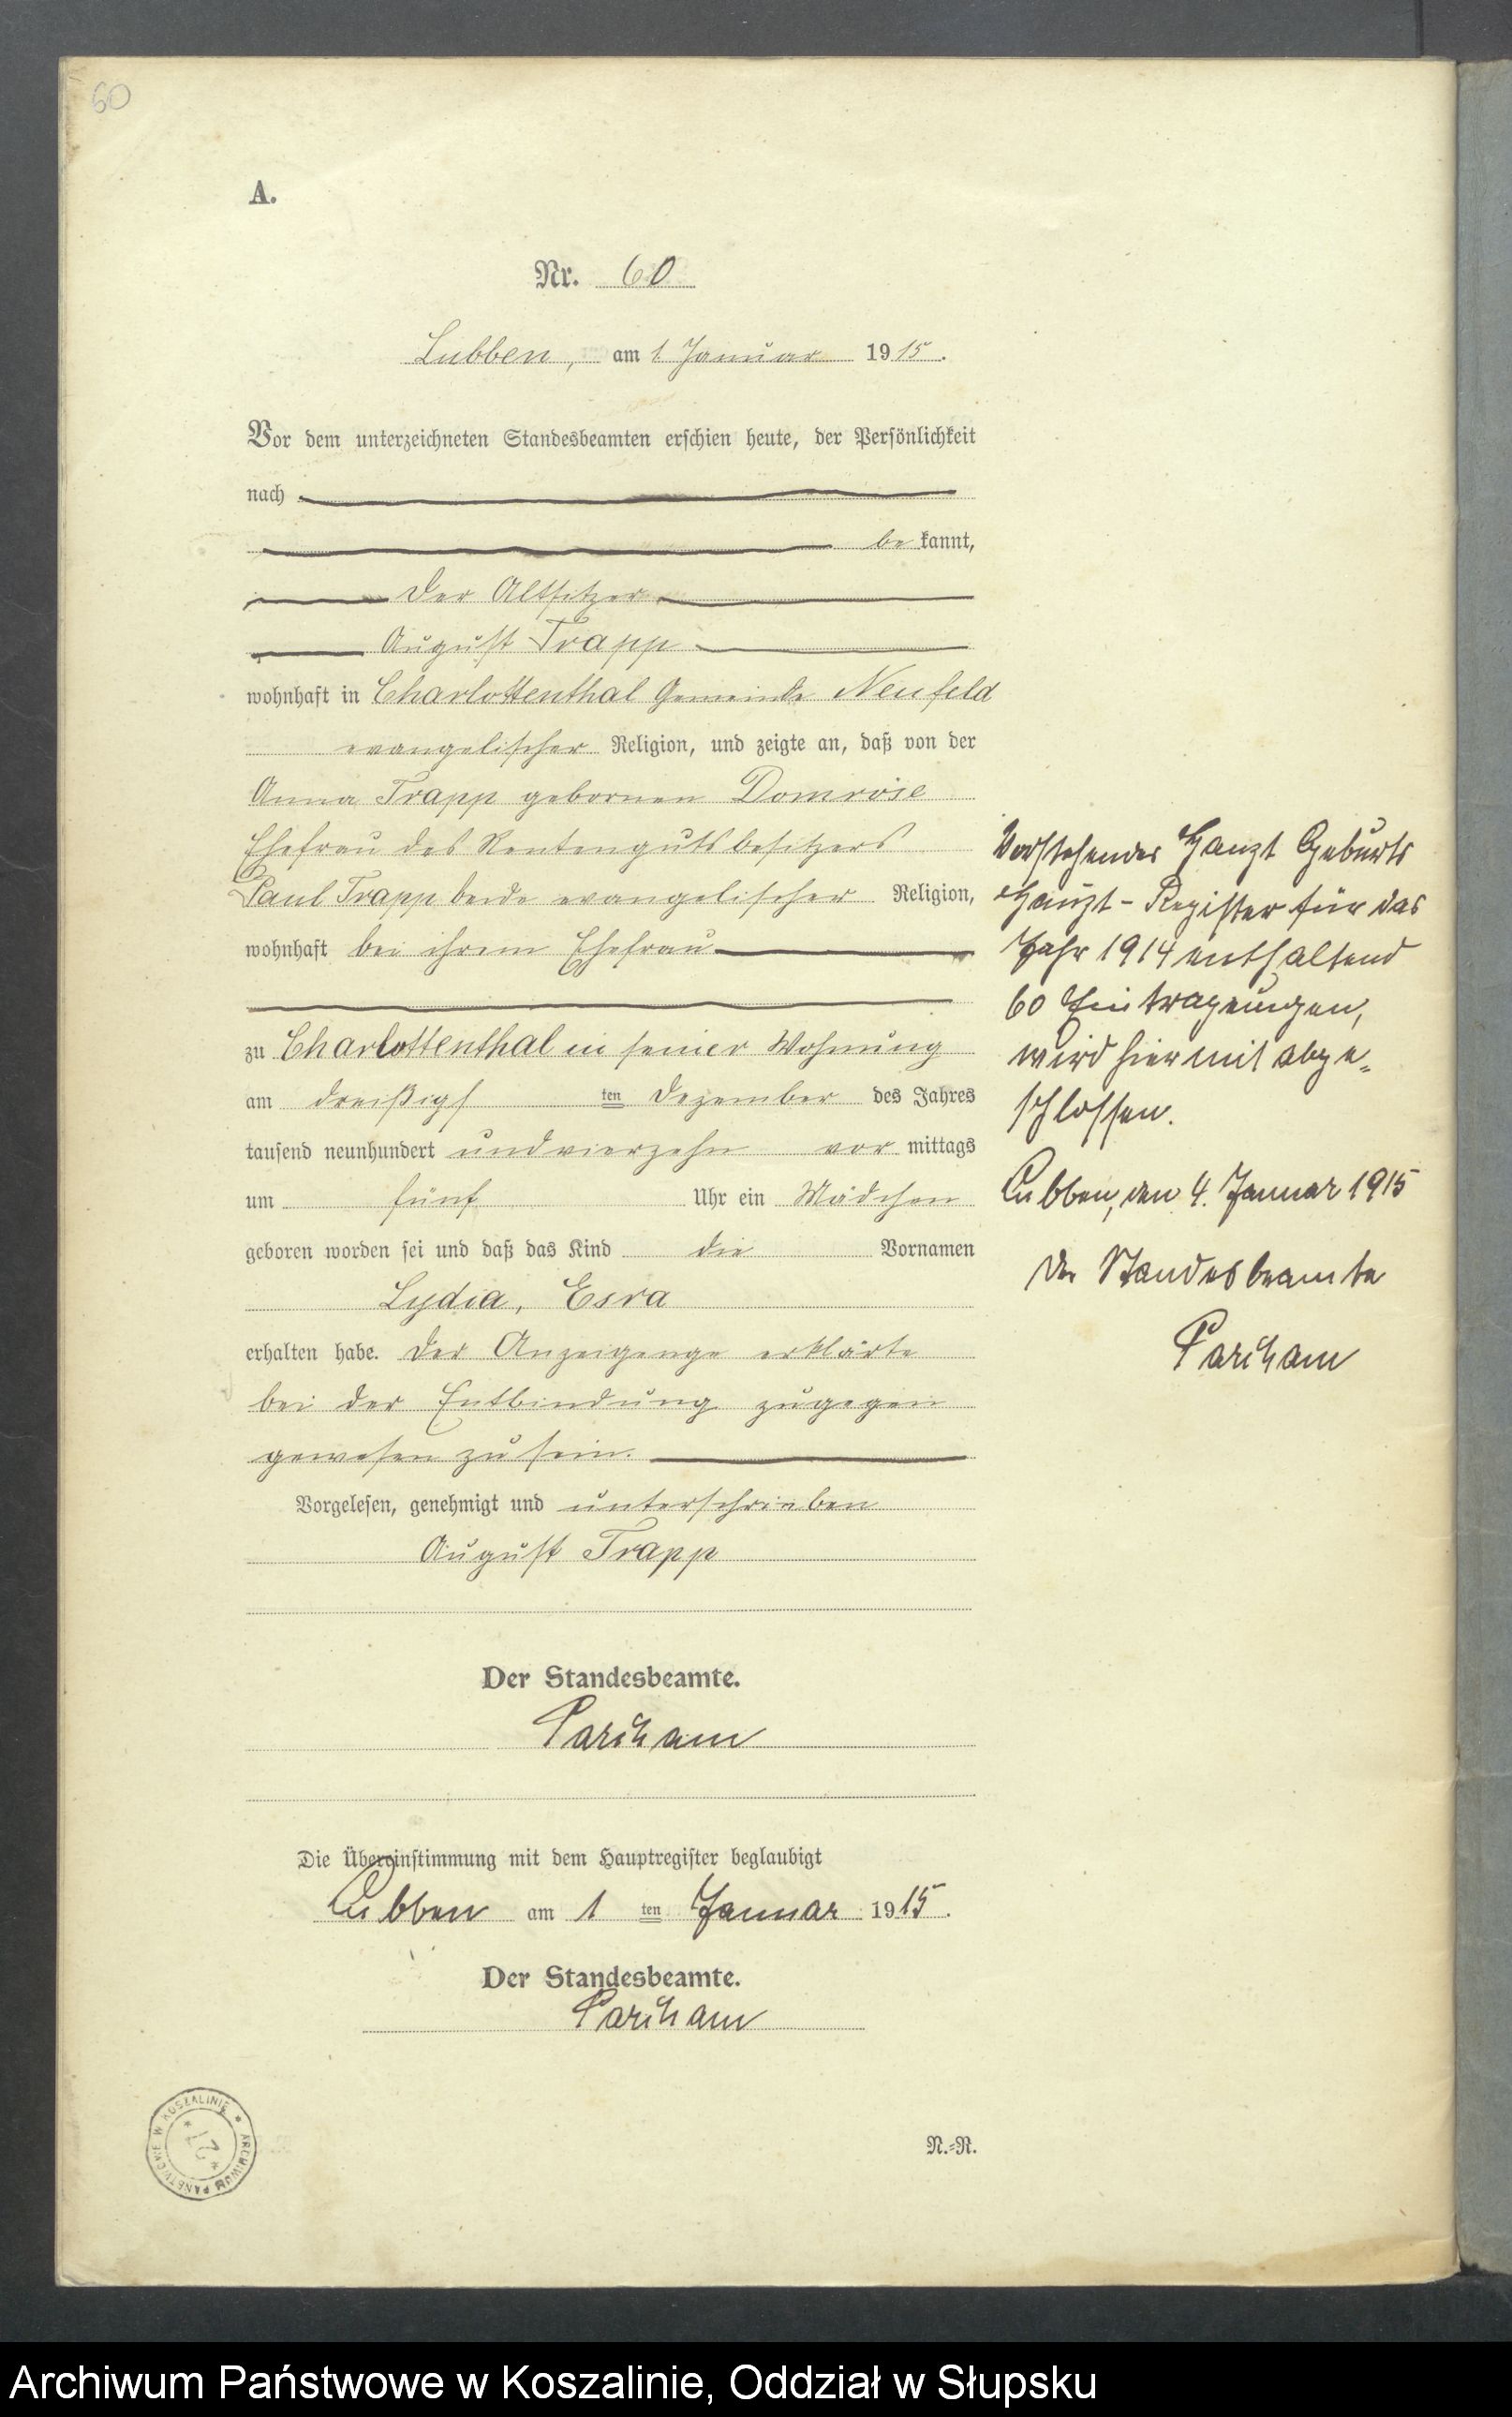 60
A.
Nr. 60
Lubben, am 1 Januar 1915.
Vor dem unterzeichneten Standesbeamten erschien heute, der Persönlichkeit
nach
be kannt,
der Altsitzer
August Trapp
wohnhaft in Charlottenthal Gemeinde Neufeld
evangelischer Religion, und zeigte an, daß von der
Anna Trapp gebornen Domröse
Ehefrau des Rentengutsbesitzers
Paul Trapp beide evangelischer Religion,
wohnhaft bei ihrem Ehefrau
zu Charlottenthal in seiner Wohnung
am dreißigs ten Dezember des Jahres
tausend neunhundert undvierzehn vor mittags
um fünf Uhr ein Mädchen
geboren worden sei und daß das Kind die Vornamen
Lydia, Esra
erhalten habe. Der Anzeigenge erklärte
bei der Entbindung zugegen
gewesen zu sein.
Vorgelesen, genehmigt und unterschrieben
August Trapp
Der Standesbeamte.
Die Übereinstimmung mit dem Hauptregister beglaubigt
Lubben am 1 ten Januar 1915.
Der Standesbeamte.
N.=R.
Vorstehendes Haupt Geburts
Haupt-Register für das
Jahr 1914 enthaltend
60 Eintragungen,
wird hiermit abge„
schlossen.
Lubben, den 4. Januar 1915
Der Standesbeamte
ARCHIWUM PAŃSTWOWE W KOSZALINIE * 27 *
Archiwum Państwowe w Koszalinie, Oddział w Słupsku